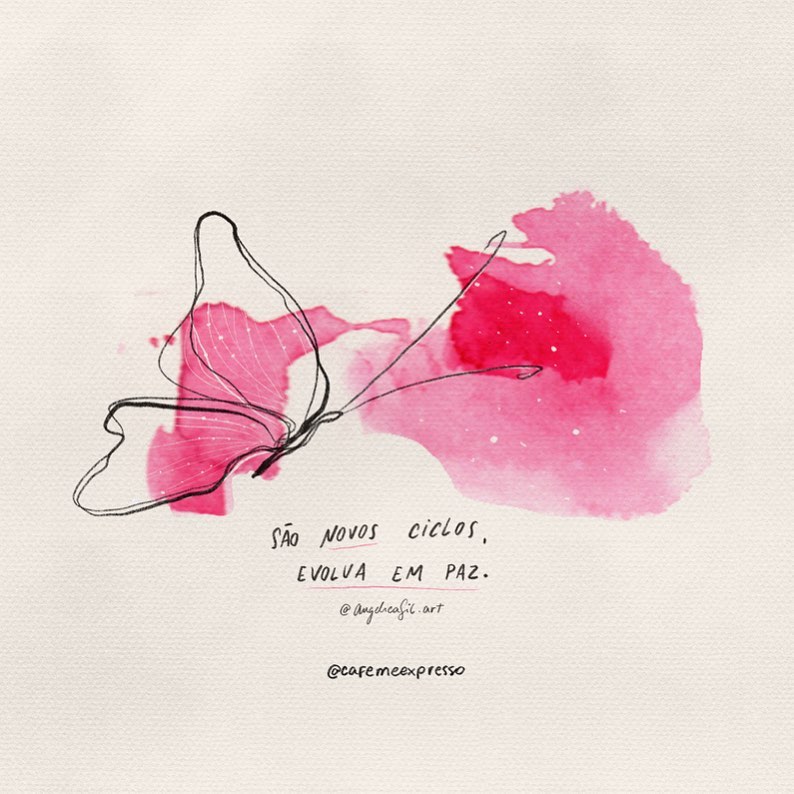 SÃO NOVOS CICLOS,
EVOLVA EM PAZ.
@angelicagil.art
@cafemeexpresso